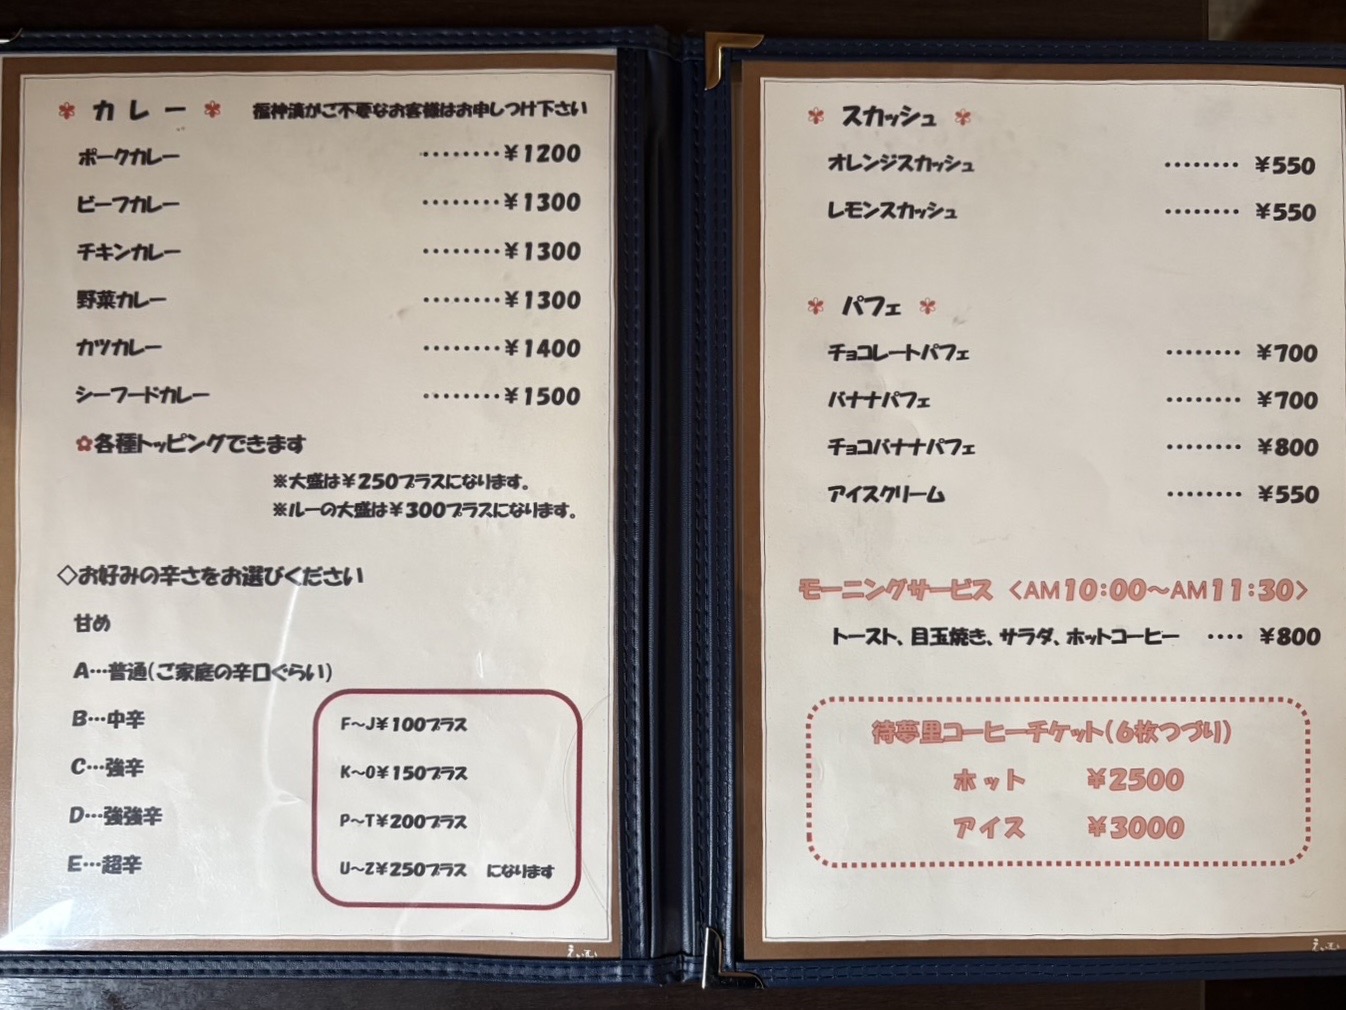 カレー 福神漬がご不要なお客様はお申しつけ下さい
ポークカレー ········¥1200
ビーフカレー ········¥1300
チキンカレー ········¥1300
野菜カレー ········¥1300
カツカレー ········¥1400
シーフードカレー ········¥1500
✿各種トッピングできます
※大盛は¥250プラスになります。
※ルーの大盛は¥300プラスになります。
◇お好みの辛さをお選びください
甘め
A…普通(ご家庭の辛口ぐらい)
B…中辛
C…強辛
D…強強辛
E…超辛
F～J¥100プラス
K～O¥150プラス
P～T¥200プラス
U～Z¥250プラス になります
えいむ
スカッシュ
オレンジスカッシュ ········ ¥550
レモンスカッシュ ········ ¥550
パフェ
チョコレートパフェ ········ ¥700
バナナパフェ ········ ¥700
チョコバナナパフェ ········ ¥800
アイスクリーム ········ ¥550
モーニングサービス <AM10:00～AM11:30>
トースト、目玉焼き、サラダ、ホットコーヒー ···· ¥800
待夢里コーヒーチケット(6枚つづり)
ホット ¥2500
アイス ¥3000
えいむ